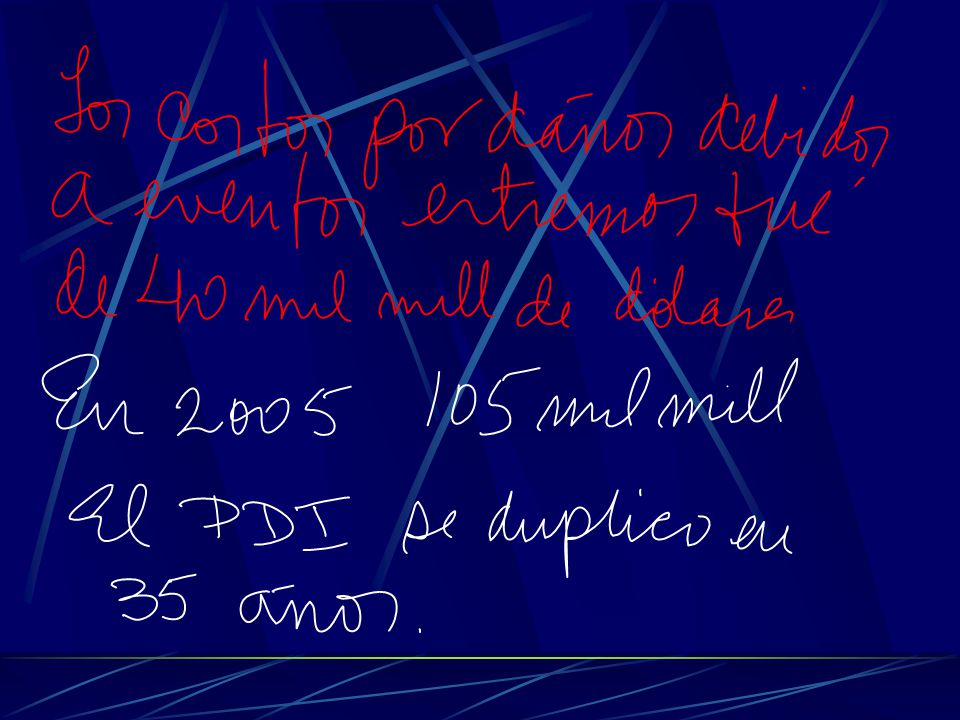 Los costos por daños debidos
a eventos extremos fué
de 40 mil mill de dólares
En 2005 105 mil mill
El PDI se duplico en
35 años.